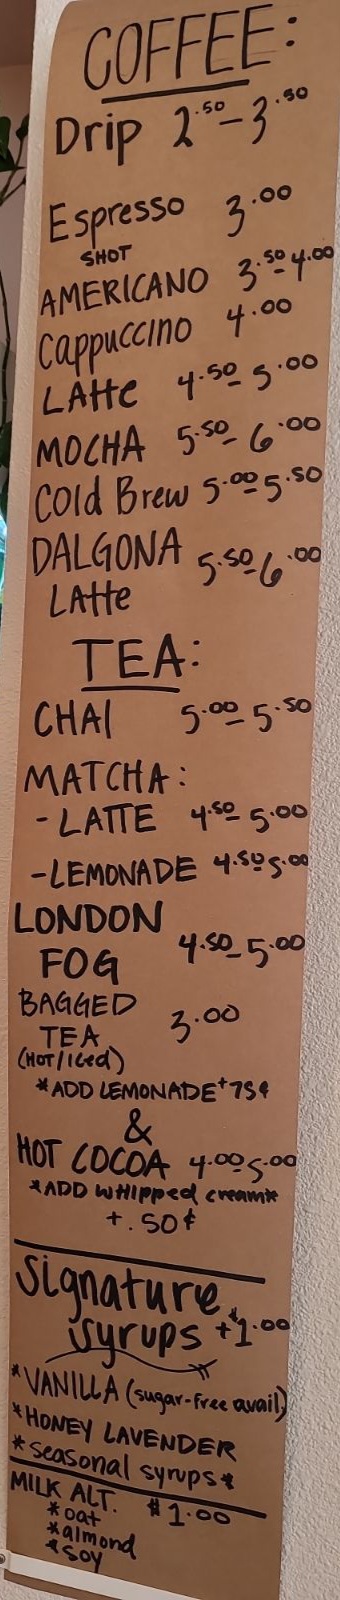 COFFEE:
Drip 2.50-3.50
Espresso 3.00
SHOT
AMERICANO 3.50-4.00
Cappuccino 4.00
LAtte 4.50-5.00
MOCHA 5.50-6.00
Cold Brew 5.00-5.50
DALGONA 5.50-6.00
LAtte
TEA:
CHAI 5.00-5.50
MATCHA:
-LATTE 4.50-5.00
-LEMONADE 4.50-5.00
LONDON
FOG 4.50-5.00
BAGGED
TEA 3.00
(HOT/Iced)
*ADD LEMONADE+75¢
&
HOT COCOA 4.00-5.00
*ADD whipped cream*
+.50¢
Signature
syrups +$1.00
*VANILLA (sugar-free avail)
*HONEY LAVENDER
*seasonal syrups*
MILK ALT. $1.00
*oat
*almond
*soy